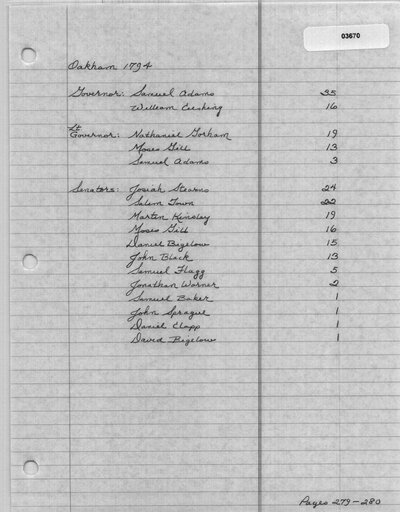 03670
Oakham 1794
Governor: Samuel Adams 35
William Cushing 16
Lt
Governor: Nathaniel Gorham 19
Moses Gill 13
Samuel Adams 3
Senators: Josiah Stearns 24
Salem Town 22
Martin Kinsley 19
Moses Gill 16
Daniel Bigelow 15
John Black 13
Samuel Flagg 5
Jonathan Warner 2
Samuel Baker 1
John Sprague 1
Daniel Clapp 1
David Bigelow 1
Pages 279-280